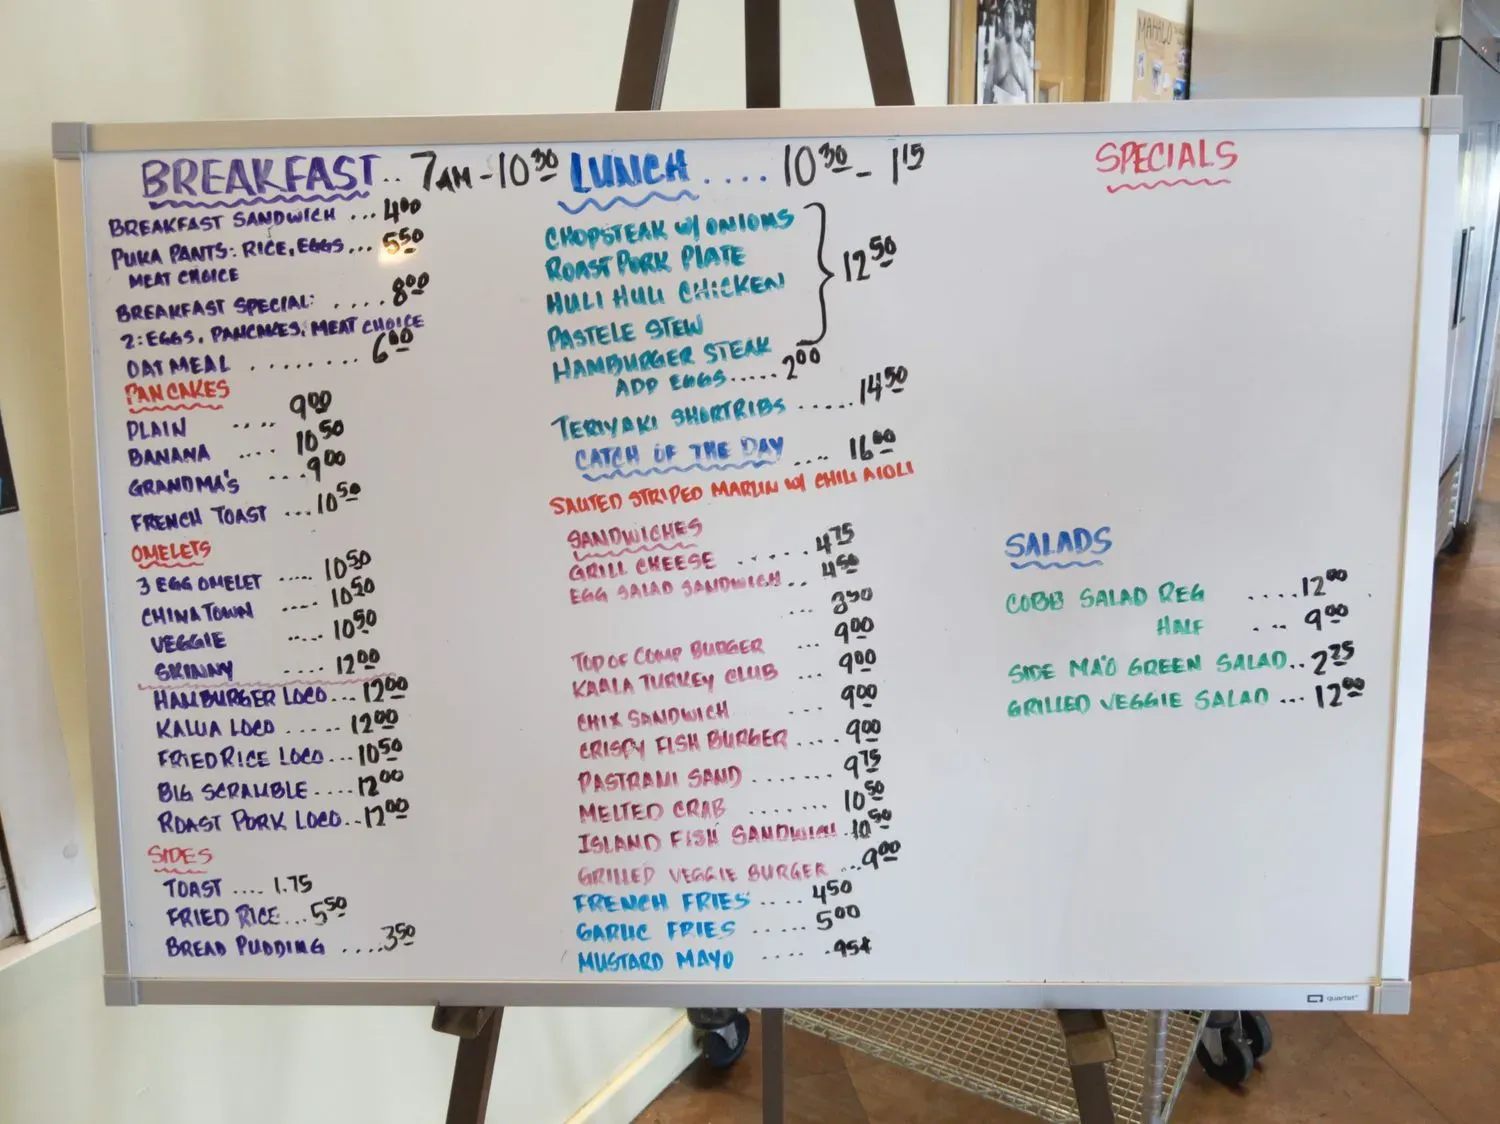 BREAKFAST.. 7AM - 10 30
BREAKFAST SANDWICH ... 4 00
PUKA PANTS: RICE, EGGS... 5 50
MEAT CHOICE
BREAKFAST SPECIAL: .... 8 00
2: EGGS, PANCAKES, MEAT CHOICE
OATMEAL ........ 6 00
PANCAKES
PLAIN .... 9 00
BANANA .... 10 50
GRANDMA'S ... 9 00
FRENCH TOAST ... 10 50
OMELETS
3 EGG OMELET ..... 10 50
CHINATOWN .... 10 50
VEGGIE ..... 10 50
SKINNY .... 12 00
HAMBURGER LOCO... 12 00
KALUA LOCO ...... 12 00
FRIED RICE LOCO... 10 50
BIG SCRAMBLE .... 12 00
ROAST PORK LOCO.. 12 00
SIDES
TOAST .... 1.75
FRIED RICE... 5 50
BREAD PUDDING .... 3 50
LUNCH .... 10 30 - 1 15
CHOPSTEAK W/ ONIONS
ROAST PORK PLATE
HULI HULI CHICKEN
PASTELE STEW
HAMBURGER STEAK
12 50
ADD EGGS..... 2 00
TERIYAKI SHORTRIBS ..... 14 50
CATCH OF THE DAY .... 16 00
SAUTED STRIPED MARLIN W/ CHILI AIOLI
SANDWICHES
GRILL CHEESE ...... 4 75
EGG SALAD SANDWICH .. 4 50
...
TOP OF COMP BURGER ... 9 00
KAALA TURKEY CLUB ... 9 00
CHIX SANDWICH .... 9 00
CRISPY FISH BURGER .... 9 00
PASTRAMI SAND ........ 9 75
MELTED CRAB ........ 10 50
ISLAND FISH SANDWICH . 10 50
GRILLED VEGGIE BURGER ... 9 00
FRENCH FRIES .... 4 50
GARLIC FRIES ..... 5 00
MUSTARD MAYO .... .95¢
SPECIALS
SALADS
COBB SALAD REG .... 12 00
HALF .... 9 00
SIDE MA'O GREEN SALAD.. 2 25
GRILLED VEGGIE SALAD ... 12 00
quartet
MAHALO